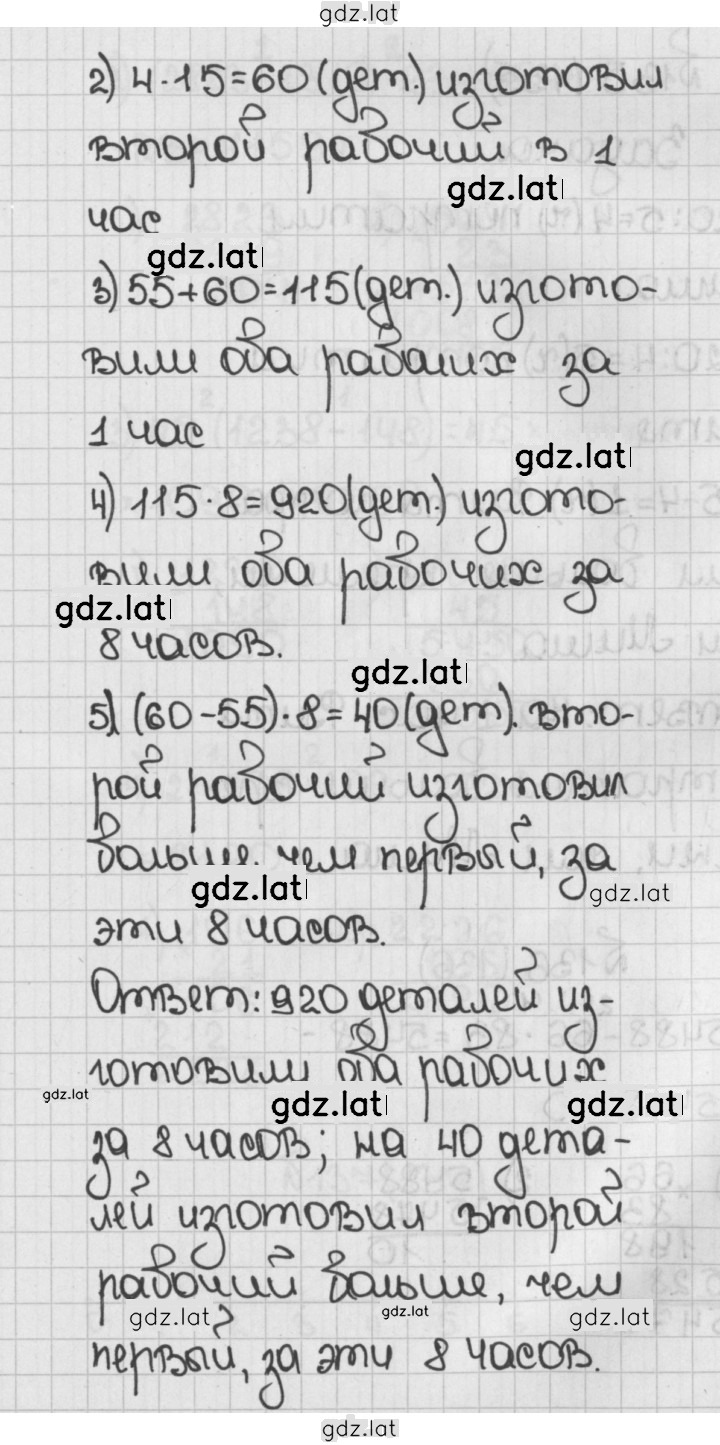 gdz.lat
2) 4·15=60(дет.) изготовил
второй рабочий в 1
gdz.lat
час
gdz.lat
3) 55+60=115(дет.) изгото-
вили оба рабочих за
1 час
gdz.lat
4) 115·8=920(дет.) изгото-
вили оба рабочих за
gdz.lat
8 часов.
gdz.lat
5) (60-55)·8=40(дет). вто-
рой рабочий изготовил
больше, чем первый, за
gdz.lat gdz.lat
эти 8 часов.
Ответ: 920 деталей из-
готовили оба рабочих
gdz.lat gdz.lat gdz.lat
за 8 часов; на 40 дета-
лей изготовил второй
рабочий больше, чем
gdz.lat gdz.lat gdz.lat
первый, за эти 8 часов.
gdz.lat